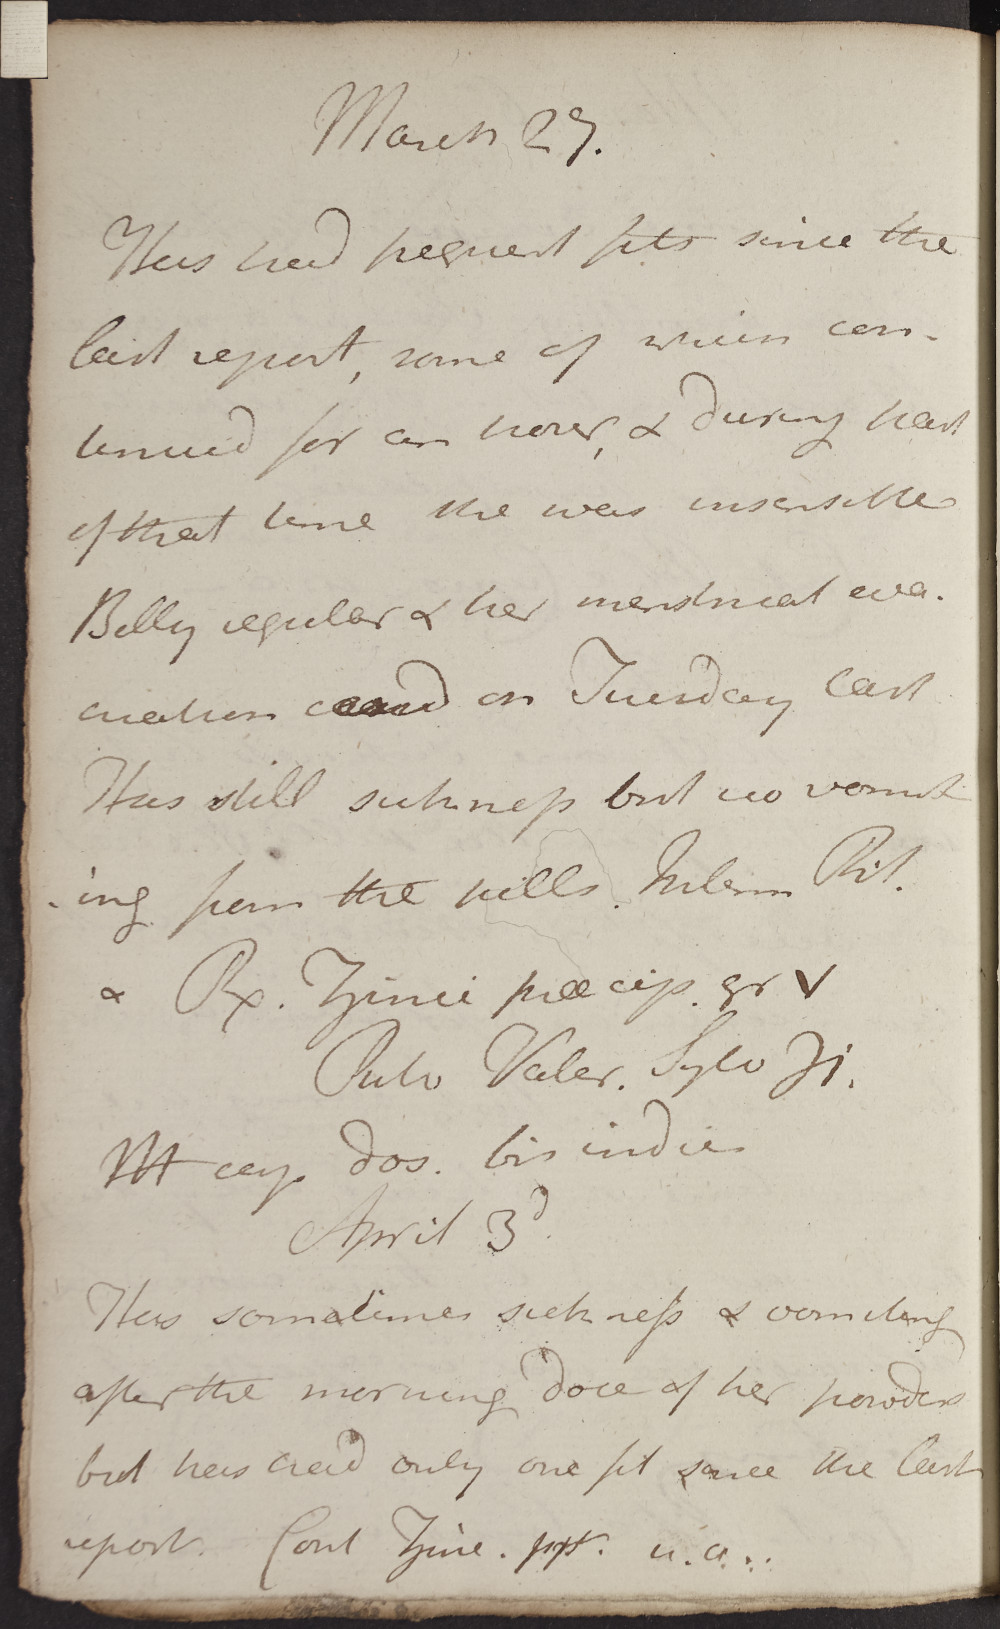 March 27.
Has had frequent fits since the
last report, some of which con-
tinued for an hour, & during part
of that time she was insensible
Belly regular & her menstrual eva-
cuation ceased on Tuesday last
Has still sickness but no vomit
-ing from the pills. Interm Pil.
& Rx. Zinci præcip. gr V
Pulv Valer. Sylv ʒi.
M cap dos. bis indies
April 3d.
Has sometimes sickness & vomiting
after the morning dose of her powders
but has had only one fit since the last
report. Cont Zinc. ppt. u.a..